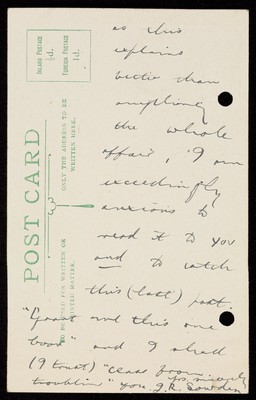 as this
explains
better than
anything
the whole
affair, I am
exceedingly
anxious to
read it to you
and to catch
this (last) post.
"Grant me this one
boon" and I shall
(I trust) "cease from
troubling" yrs. sincerely
J.R. Sowden
POST CARD
INLAND POSTAGE ½d.
FOREIGN POSTAGE 1d.
ONLY THE ADDRESS TO BE
WRITTEN HERE.
TO BE USED FOR WRITTEN OR
PRINTED MATTER.